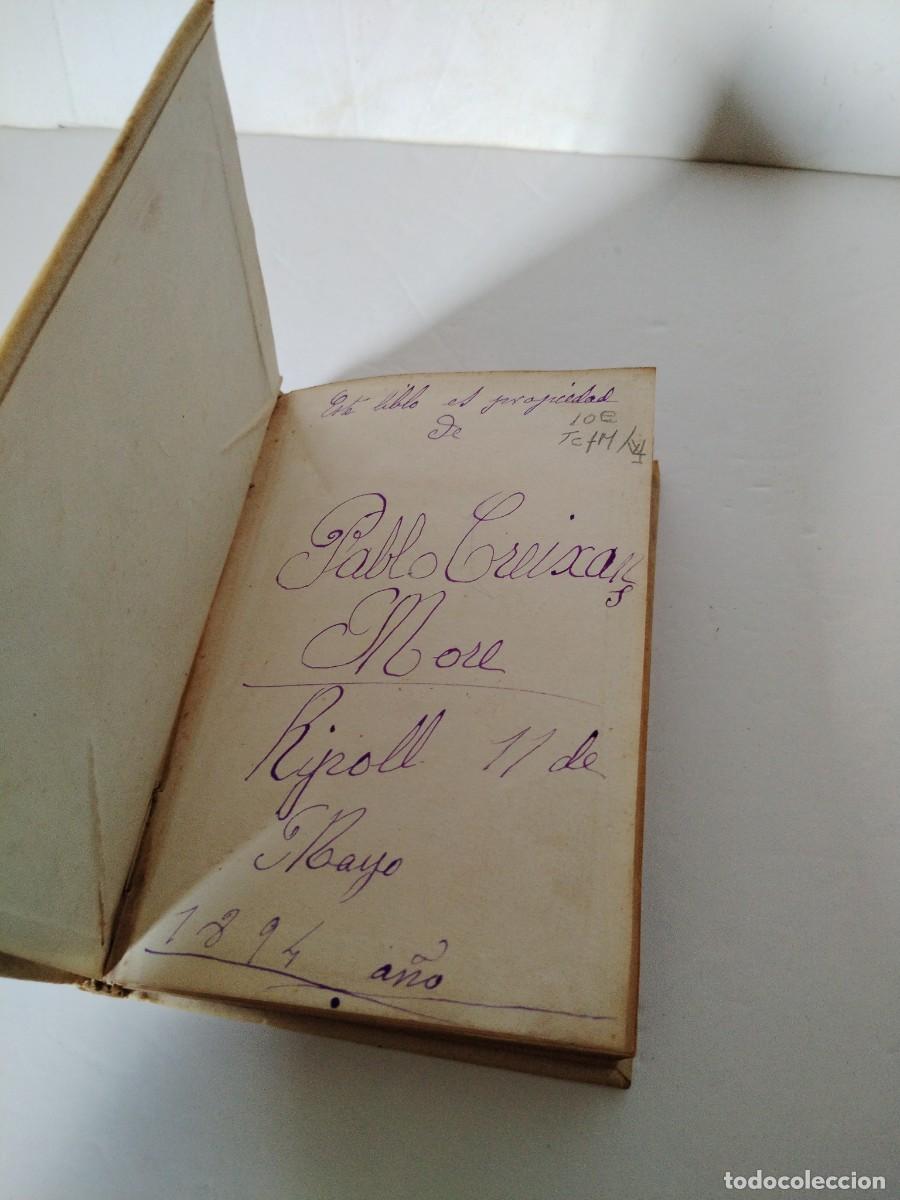 Este liblo es propiedad
de
10€
Pablo Creixans
More
Ripoll 11 de
Mayo
1894 año
todocoleccion